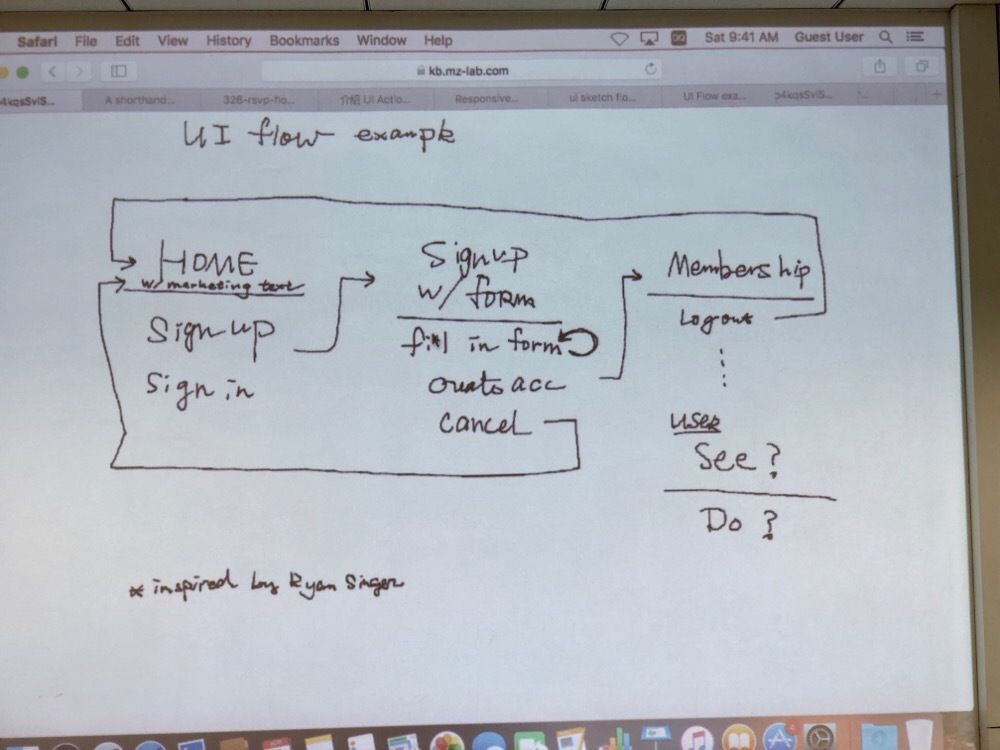 Safari File Edit View History Bookmarks Window Help Sat 9:41 AM Guest User
kb.mz-lab.com
4kqsSvlS... A shorthand... 326-rsvp-flo... 介紹 UI Actio... Responsive... ui sketch flo... UI Flow exa... p4kqsSvlS...
UI flow example
HOME
w/ marketing text
Sign up
Sign in
Signup
w/ form
fill in form
create acc
cancel
Membership
Logout
USER
See?
Do?
* inspired by Ryan Singer